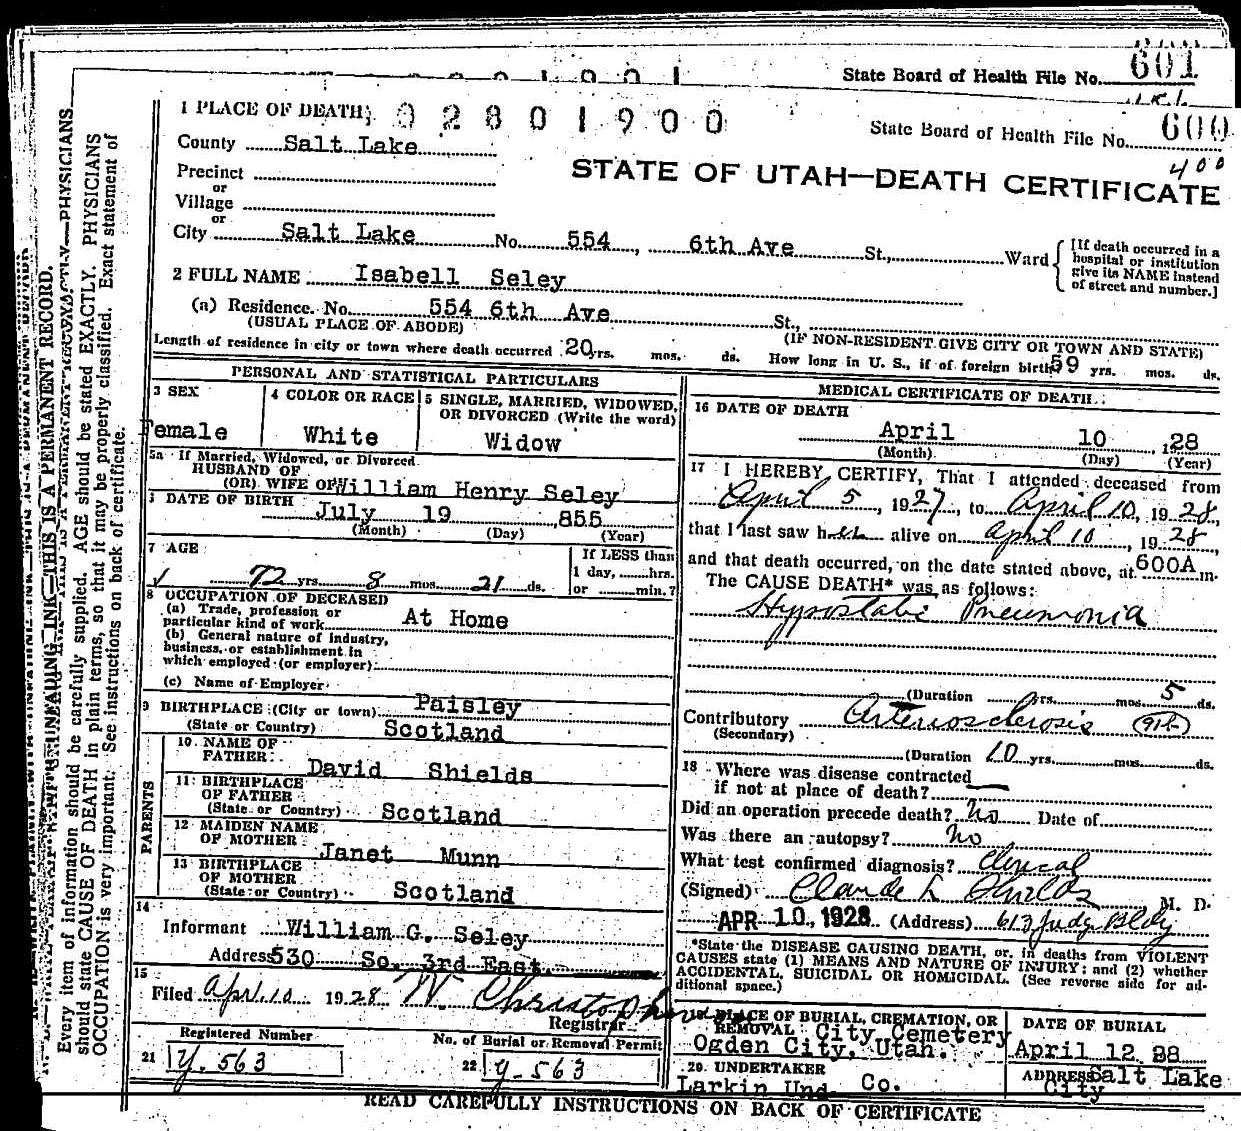 State Board of Health File No. 601
1 PLACE OF DEATH; 02801900
State Board of Health File No. 600
400
County Salt Lake
STATE OF UTAH—DEATH CERTIFICATE
Precinct
or
Village
or
City Salt Lake No. 554, 6th Ave St., Ward
[If death occurred in a hospital or institution give its NAME instead of street and number.]
2 FULL NAME Isabell Seley
(a) Residence. No. 554 6th Ave St.,
(USUAL PLACE OF ABODE)
(IF NON-RESIDENT GIVE CITY OR TOWN AND STATE)
Length of residence in city or town where death occurred 20 yrs. mos. ds. How long in U. S., if of foreign birth 59 yrs. mos. ds.
PERSONAL AND STATISTICAL PARTICULARS
3 SEX
Female
4 COLOR OR RACE
White
5 SINGLE, MARRIED, WIDOWED, OR DIVORCED (Write the word)
Widow
5a If Married, Widowed, or Divorced
HUSBAND OF
(OR) WIFE OF William Henry Seley
DATE OF BIRTH
July 19 ,855
(Month) (Day) (Year)
7 AGE
72 yrs. 8 mos. 21 ds.
If LESS than
1 day, hrs.
or min.?
8 OCCUPATION OF DECEASED
(a) Trade, profession or
particular kind of work At Home
(b) General nature of industry,
business, or establishment in
which employed (or employer)
(c) Name of Employer
9 BIRTHPLACE (City or town) Paisley
(State or Country) Scotland
PARENTS
10 NAME OF
FATHER David Shields
11 BIRTHPLACE
OF FATHER
(State or Country) Scotland
12 MAIDEN NAME
OF MOTHER Janet Munn
13 BIRTHPLACE
OF MOTHER
(State or Country) Scotland
14
Informant William G. Seley
Address 530 So. 3rd East
15
Filed Apr. 10 1928 W Christopherson
Registrar
Registered Number
21 y. 563
No. of Burial or Removal Permit
22 y-563
MEDICAL CERTIFICATE OF DEATH
16 DATE OF DEATH
April 10 , 128
(Month) (Day) (Year)
17 I HEREBY CERTIFY, That I attended deceased from
April 5, 1927, to April 10, 1928,
that I last saw her alive on April 10, 1928,
and that death occurred, on the date stated above, at 600A m.
The CAUSE DEATH* was as follows:
Hypostatic Pneumonia
(Duration yrs. mos. 5 ds.
Contributory Arteriosclerosis
(Secondary)
(Duration 10 yrs. mos. ds.
18 Where was disease contracted
if not at place of death?
Did an operation precede death? No Date of
Was there an autopsy? No
What test confirmed diagnosis? Clinical
(Signed) Claude L Shields M. D.
APR 10. 1928 (Address) 613 Judge Bldg
*State the DISEASE CAUSING DEATH, or, in deaths from VIOLENT
CAUSES state (1) MEANS AND NATURE OF INJURY; and (2) whether
ACCIDENTAL, SUICIDAL OR HOMICIDAL. (See reverse side for additional space.)
19 PLACE OF BURIAL, CREMATION, OR
REMOVAL City Cemetery
Ogden City, Utah.
DATE OF BURIAL
April 12 28
20. UNDERTAKER
Larkin Und. Co.
ADDRESS Salt Lake
City
READ CAREFULLY INSTRUCTIONS ON BACK OF CERTIFICATE
Every item of information should be carefully supplied. AGE should be stated EXACTLY. PHYSICIANS
should state CAUSE OF DEATH in plain terms, so that it may be properly classified. Exact statement of
OCCUPATION is very important. See instructions on back of certificate.